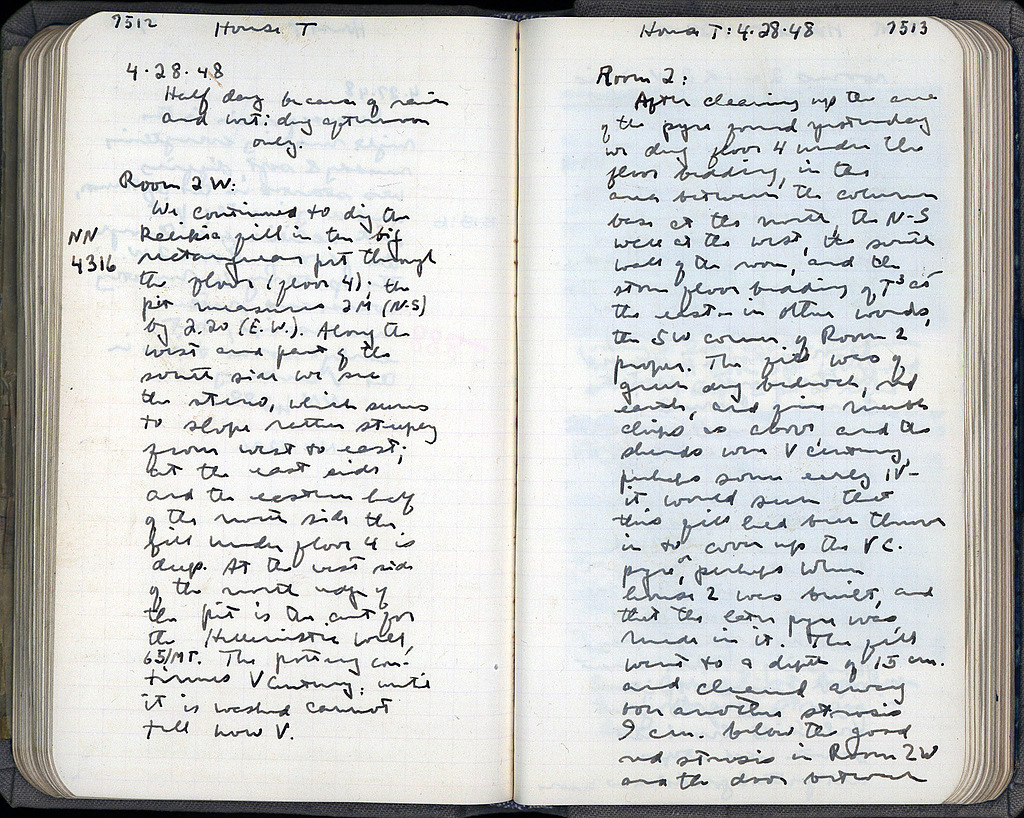 7512
House T
4·28·48
Half day because of rain
and wet: dug afternoon
only.
Room 2 W:
We continued to dig the
NN
4316
fill in the big
rectangular pit through
the floor (floor 4); the
pit measures 2M (N-S)
by 2.20 (E.W.). Along the
west and part of the
south side we see
the stereo, which seems
to slope rather steeply
from west to east;
at the east side
and the eastern half
of the north side the
fill under floor 4 is
deep. At the west side
of the north edge of
the pit is the cut for
the Hellenistic wall,
65/ΜΓ. The pottery con-
tinues V century; until
it is washed cannot
tell how V.
House T: 4·28·48
7513
Room 2:
After cleaning up the area
of the pyre found yesterday
we dug floor 4 under the
floor bedding, in the
area between the column
base at the north, the N-S
wall at the west, the south
wall of the room, and the
stone floor bedding of T³ at
the east - in other words,
the SW corner of Room 2
proper. The fill was of
green dug bedrock, red
earth, and fine marble
chips as above and the
sherds were V century,
perhaps some early IV -
it would seem that
this fill had been thrown
in to cover up the V C.
pyre, perhaps when
house 2 was built, and
that the later pyre was
made in it. The fill
went to a depth of 15 cm.
and cleared away
on another strosis
9 cm. below the good
red strosis in Room 2W
and the door between